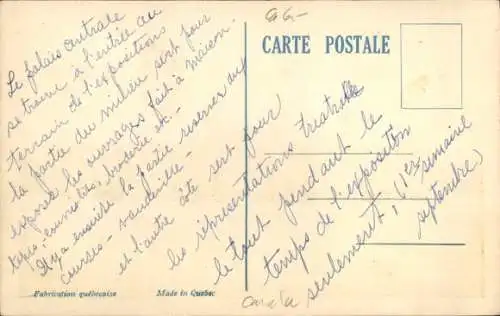 Le palais centrale
se trouve à l'entrée au
terrain de l'expositions
la partie du milieu sert pour
exposer les ouvrages fait à maison.
tapis, couvertes, broderie etc.
Il y a ensuite la partie reservee aux
courses - vaudeville -
et l'autre côté sert pour
les représentations theatrales
le tout pendant le
temps de l'exposition
seulement; (1ere semaine
septembre)
CARTE POSTALE
Fabrication québecoise
Made in Quebec